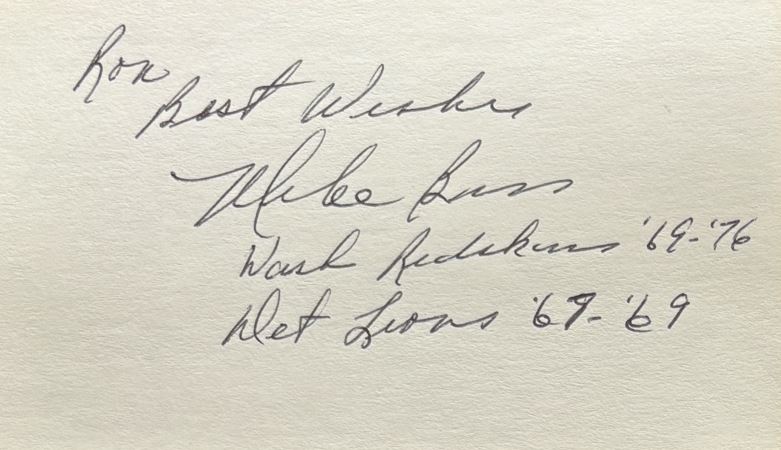 Ron
Best Wishes
Mike Bass
Wash Redskins '69-'76
Det Lions '67-'69